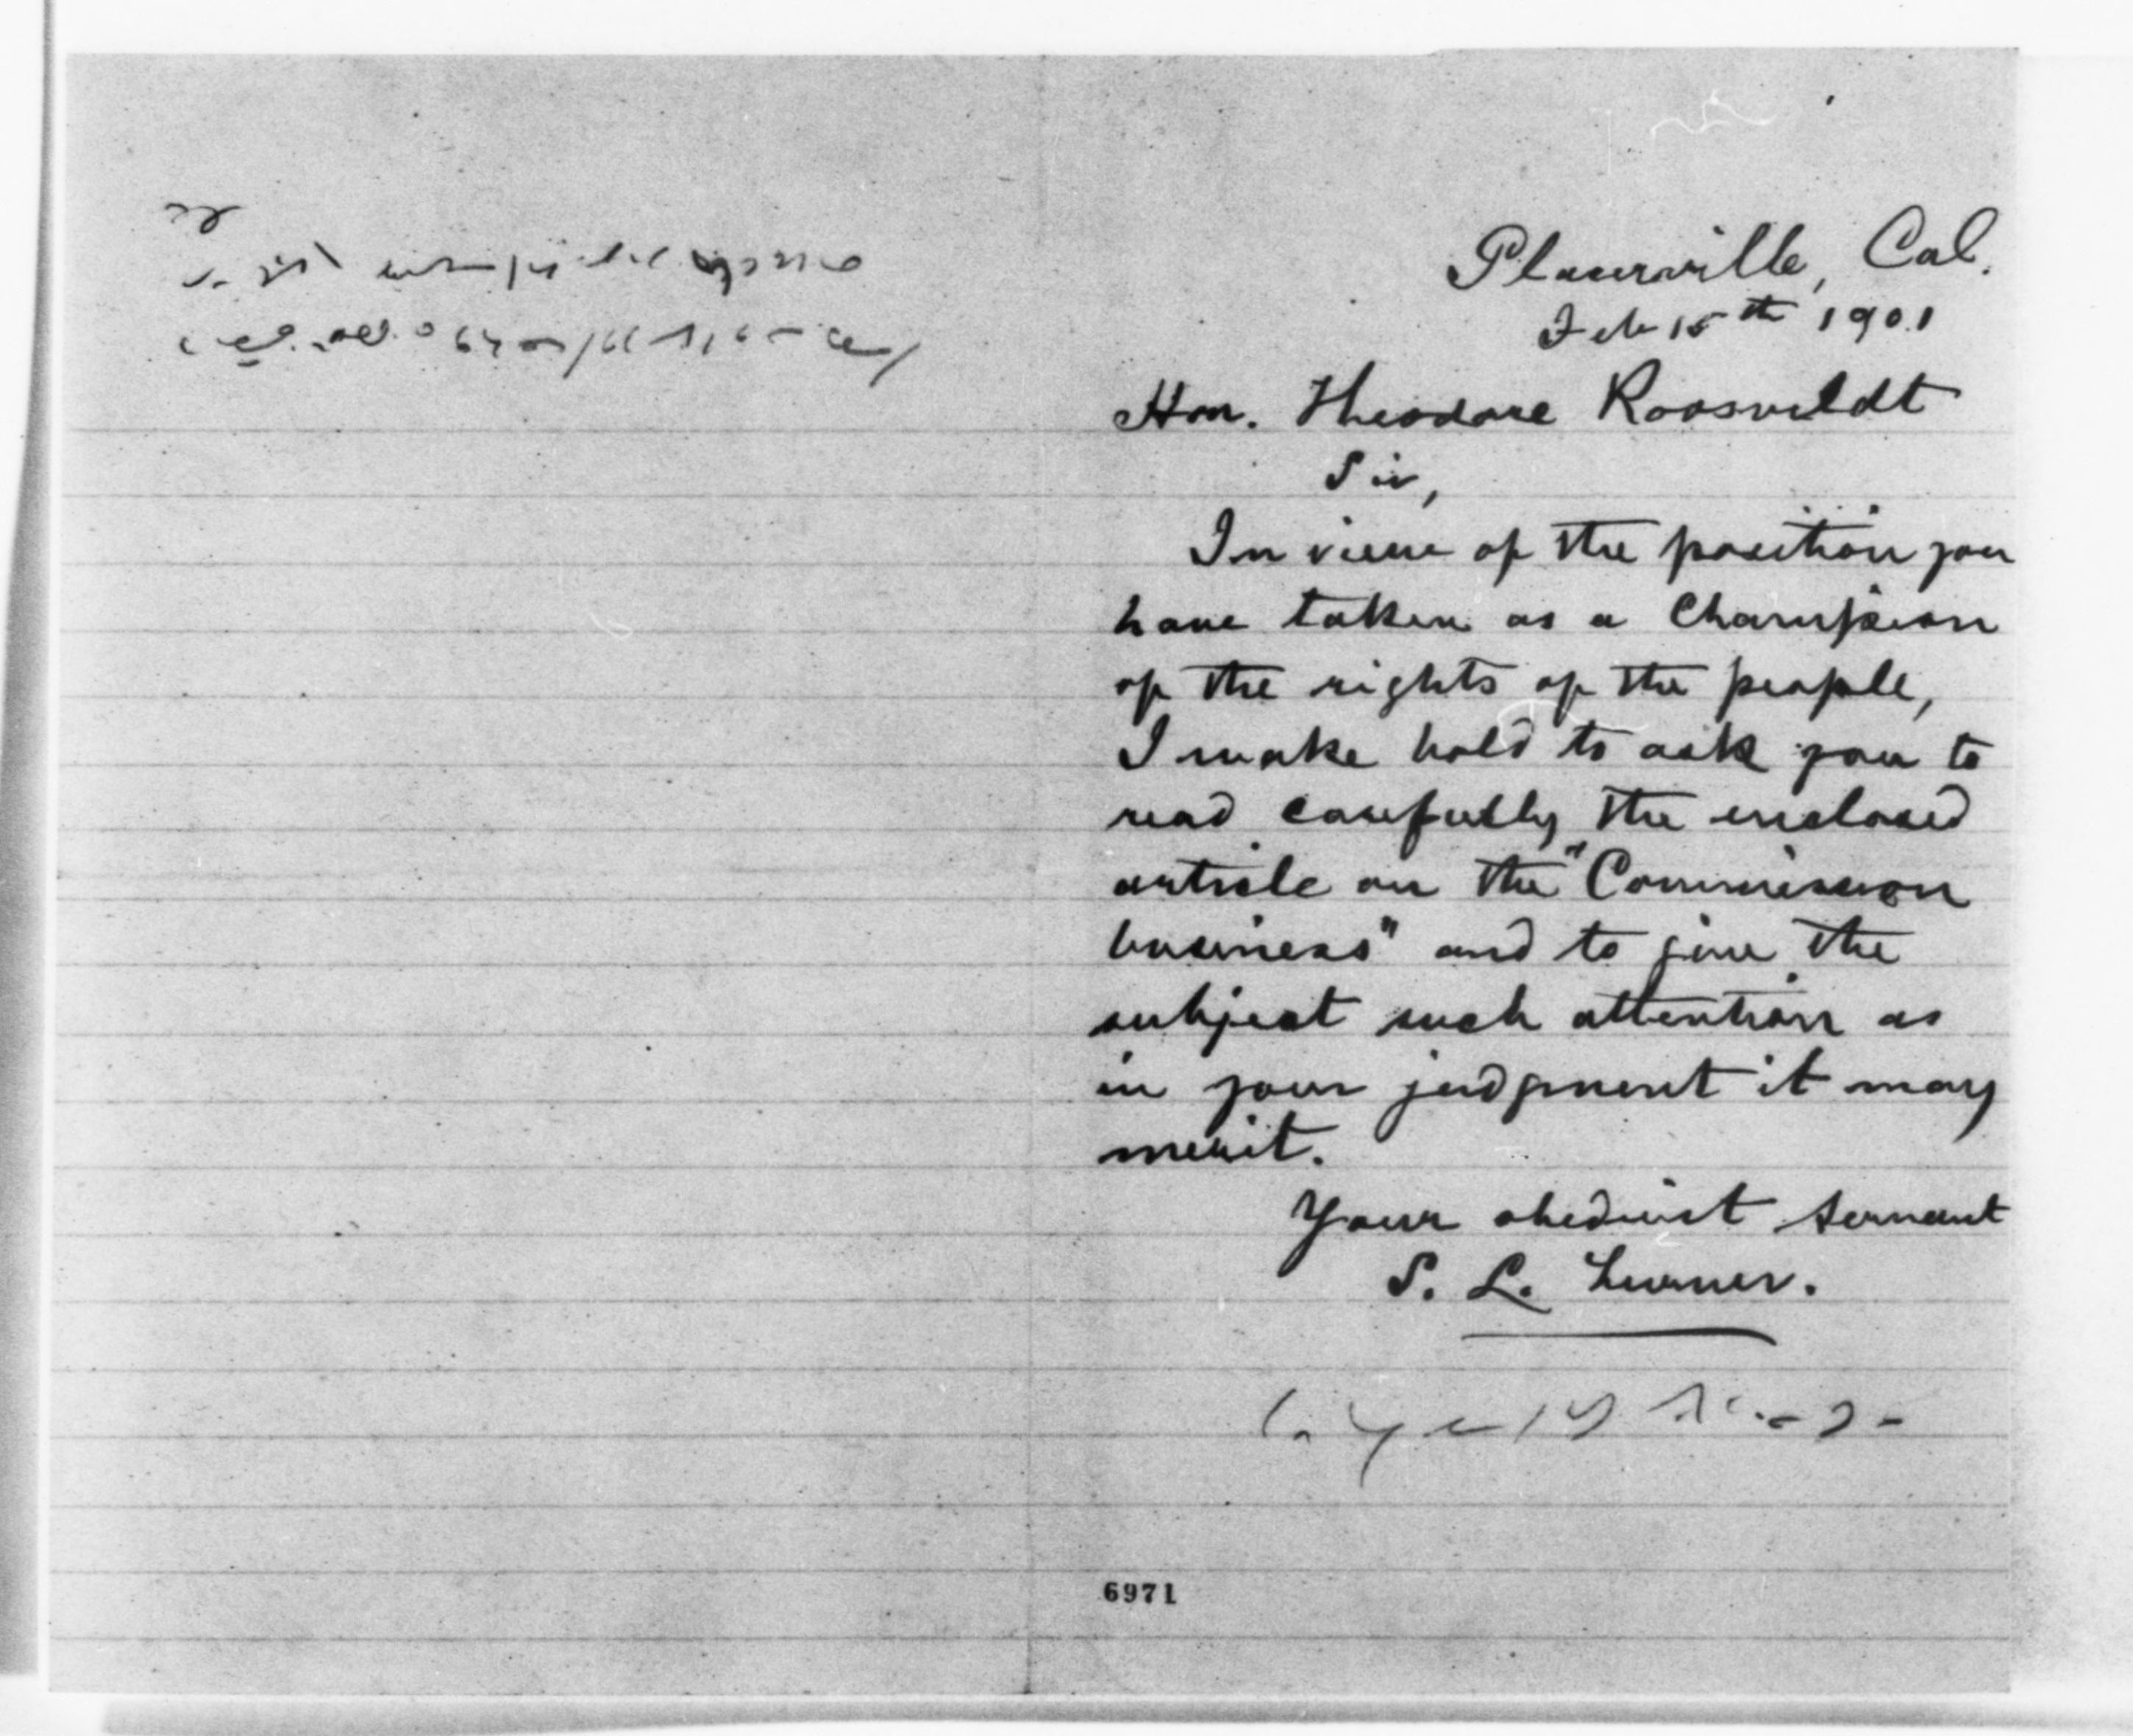 Placerville, Cal.
Feb 15th 1901
Hon. Theodore Roosveldt
Sir,
In view of the position you
have taken as a Champion
of the rights of the people,
I make bold to ask you to
read carefully the enclosed
article on the "Commission
business" and to give the
subject such attention as
in your judgment it may
merit.
Your obedient servant
S. L.
6971